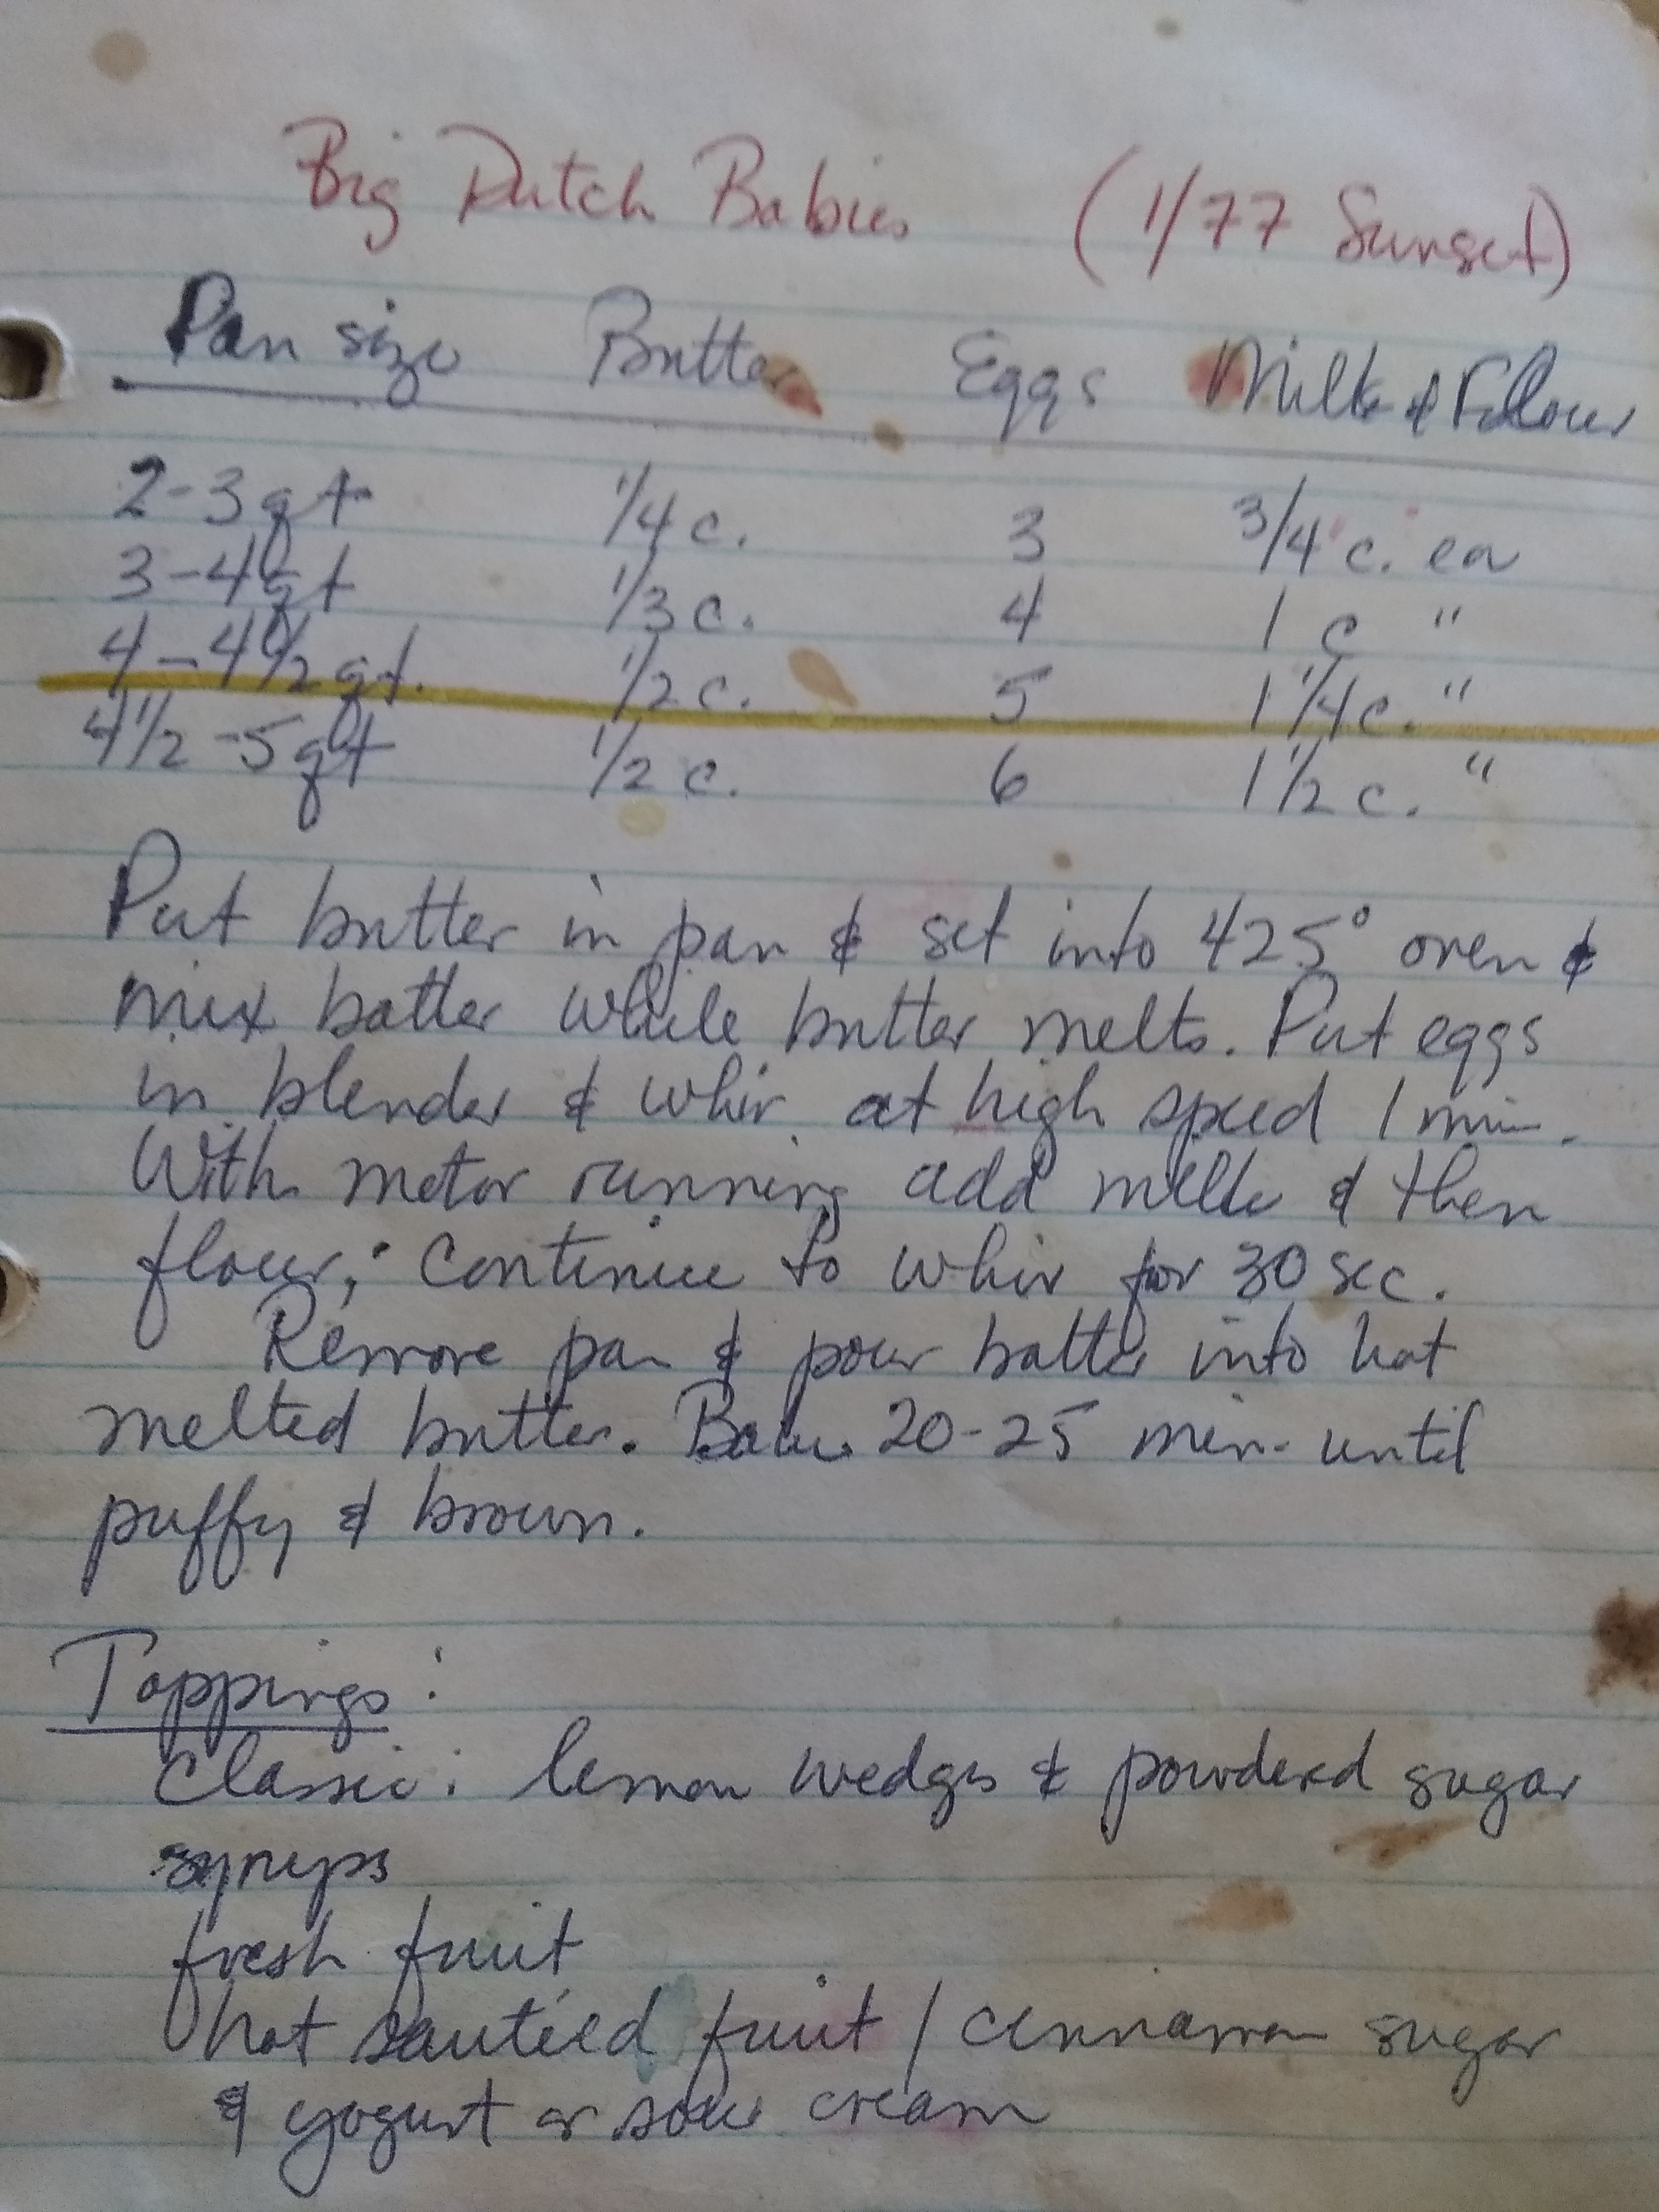 Big Dutch Babies (1/77 Sunset)
Pan size Butter Eggs Milk & Flour
2-3 qt 1/4 c. 3 3/4 c. ea
3-4 qt 1/3 c. 4 1 c "
4-4 1/2 qt. 1/2 c. 5 1 1/4 c. "
4 1/2-5 qt 1/2 c. 6 1 1/2 c. "
Put butter in pan & set into 425° oven &
mix batter while butter melts. Put eggs
in blender & whir at high speed 1 min.
With motor running add milk & then
flour; continue to whir for 30 sec.
Remove pan & pour batter into hot
melted butter. Bake 20-25 min. until
puffy & brown.
Toppings:
Classic: lemon wedges & powdered sugar
syrups
fresh fruit
hot sautéed fruit / cinnamon sugar
& yogurt or sour cream